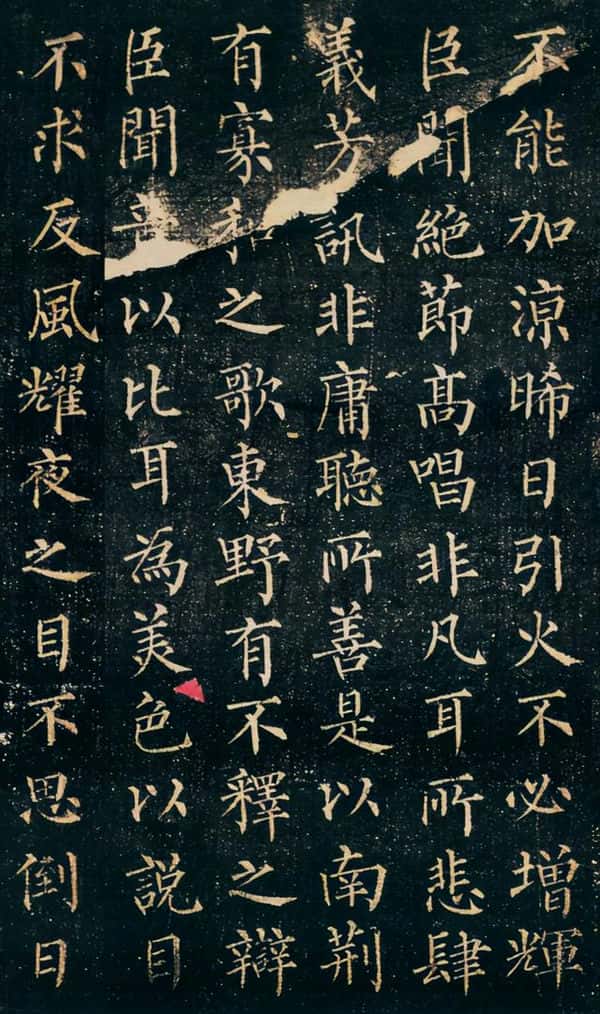 不能加涼晞日引火不必增輝
臣聞絕節高唱非凡耳所悲肆
義芳訊非庸聽所善是以南荆
有寡和之歌東野有不釋之辯
臣聞音以比耳為美色以說目
不求反風耀夜之目不思倒日